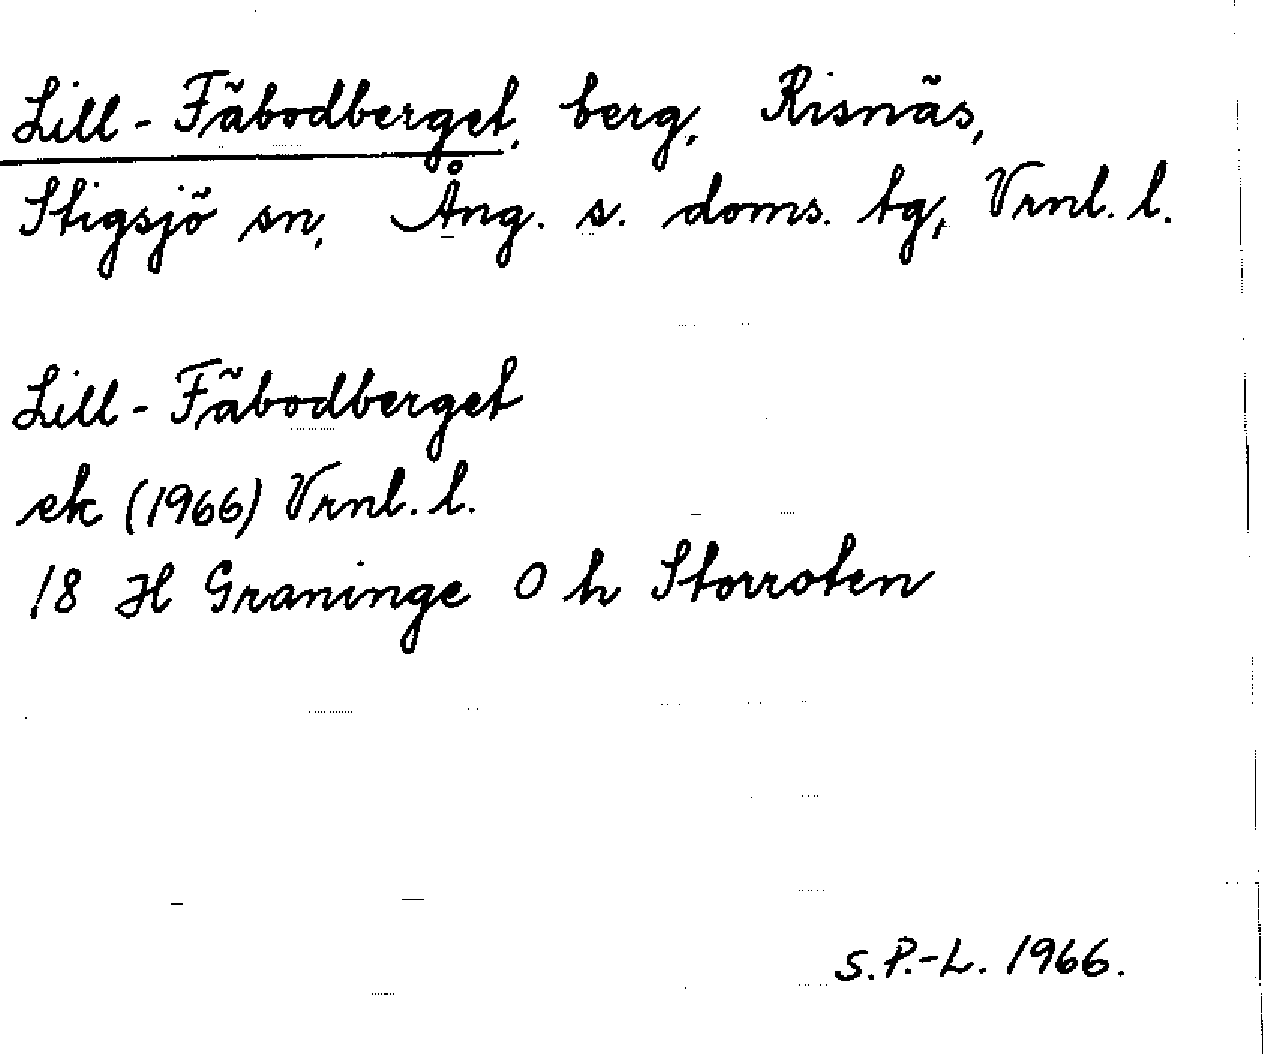 Lill-Fäbodberget, berg, Risnäs,
Stigsjö sn, Ång. s. doms. tg, Vrnl. l.
Lill-Fäbodberget
ek (1966) Vrnl. l.
18 H Graninge 0 h Storroten
S. P.-L. 1966.